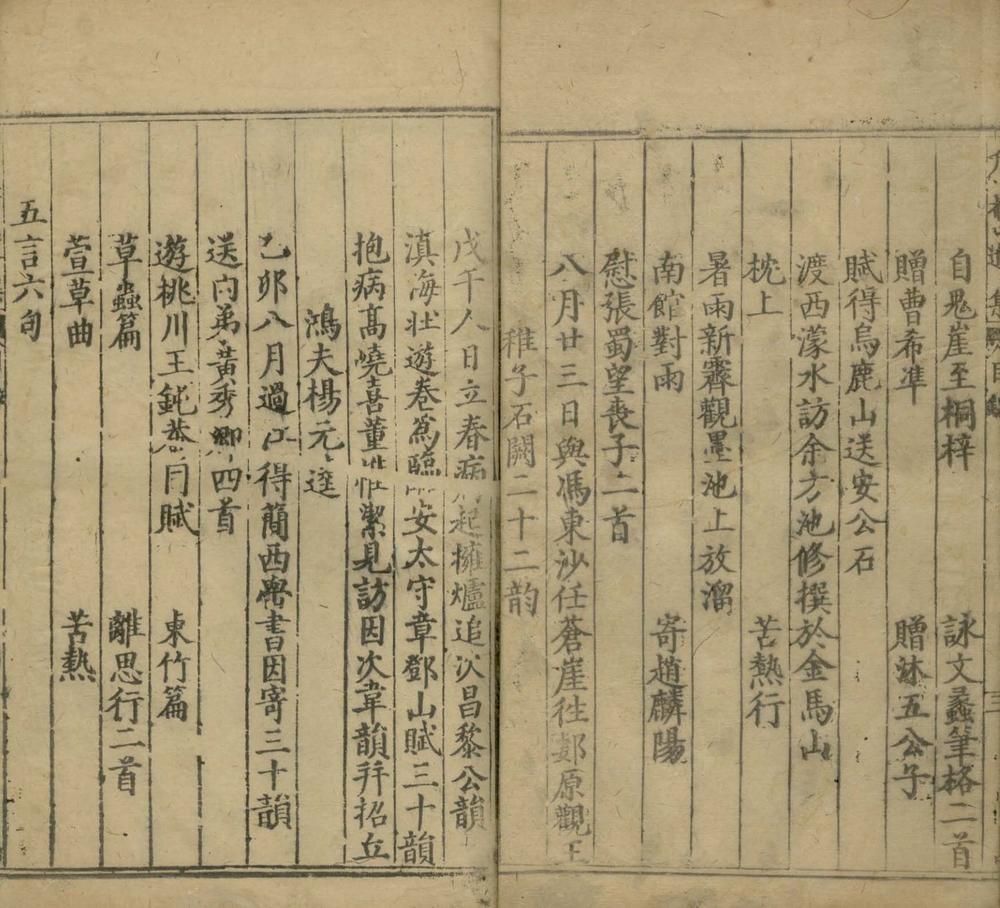 自鬼崖至桐梓　詠文蠡筆格二首
贈曹希準　贈沐五公子
賦得烏鹿山送安公石
渡西濛水訪余方池修撰於金馬山
枕上　苦熱行
暑雨新霽觀墨池上放溜
南館對雨　寄趙麟陽
慰張蜀望喪子二首
八月廿三日與馮東沙任蒼崖徃郪原觀王
稚子石闕二十二韵
戊午人日立春病起擁爐追次昌黎公韻
滇海壯遊卷爲臨安太守章鄧山賦三十韻
抱病高嶢喜董惟潔見訪因次韋韻并招丘
鴻夫楊元達
乙卯八月過江得簡西嶨書因寄三十韻
送内弟黄秀卿四首
遊桃川王鈍菴同賦　東竹篇
草蟲篇　離思行二首
萱草曲　苦熱
五言六句